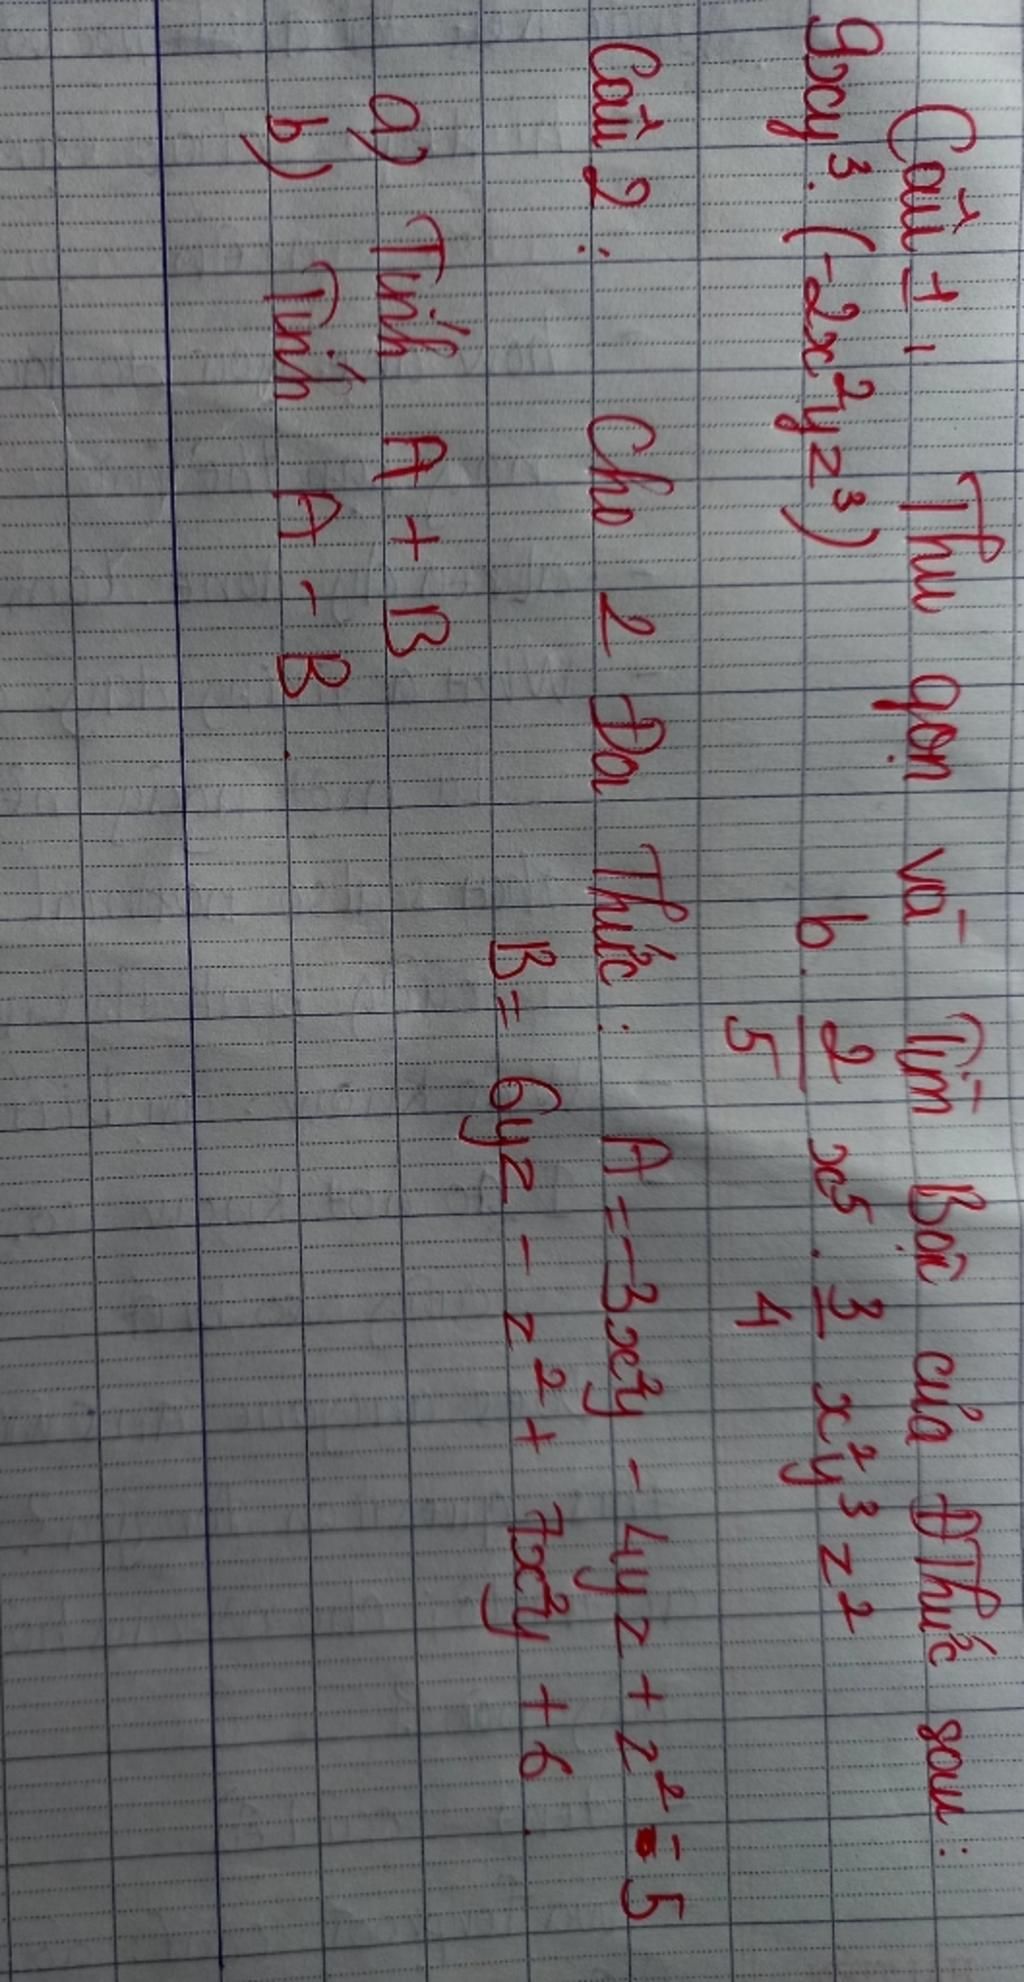 Câu 1: Thu gọn và Tìm Bậc của ĐThức sau:
9xy³.(-2x²yz³) b. 2/5 x⁵ . 3/4 x²y³z²
Câu 2: Cho 2 Đa Thức: A = -3x²y - 4yz + z² - 5
B = 6yz - z² + 7x²y + 6.
a) Tính A + B
b) Tính A - B.